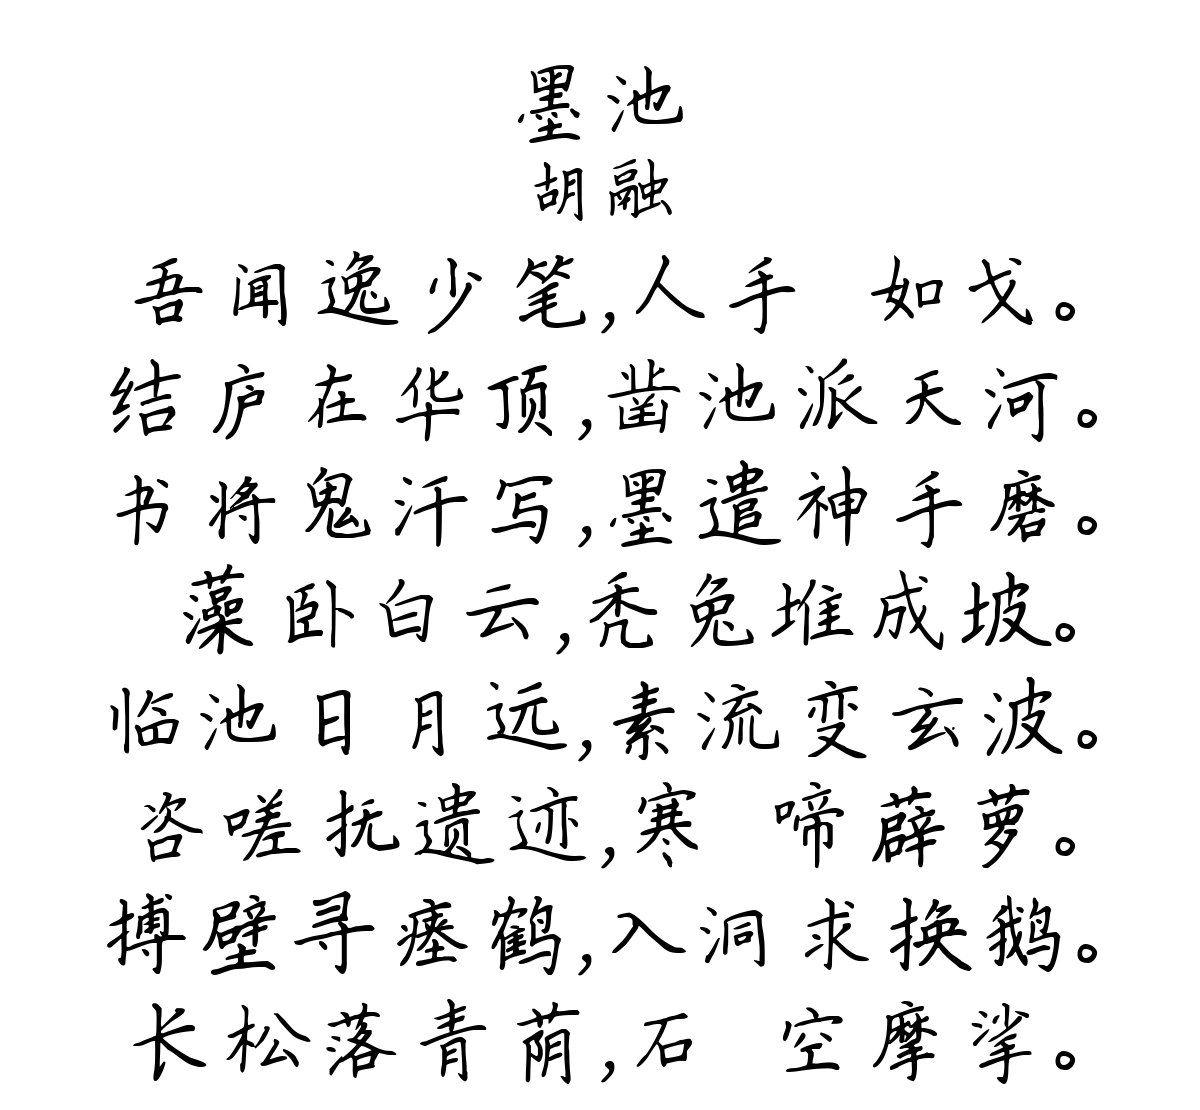 墨池
胡融
吾闻逸少笔,人手 如戈。
结庐在华顶,凿池派天河。
书将鬼汗写,墨遣神手磨。
藻卧白云,秃兔堆成坡。
临池日月远,素流变玄波。
咨嗟抚遗迹,寒 啼薜萝。
搏壁寻瘗鹤,入洞求换鹅。
长松落青荫,石 空摩挲。